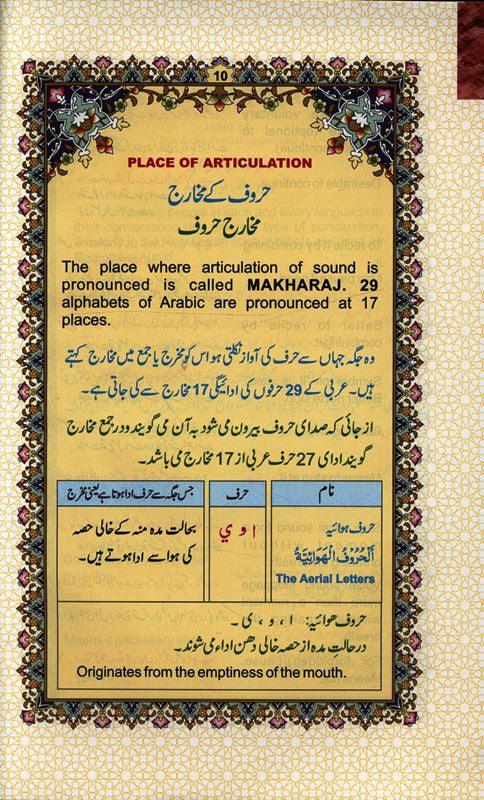 10
PLACE OF ARTICULATION
حروف کے مخارج
مخارج حروف
The place where articulation of sound is
pronounced is called MAKHARAJ. 29
alphabets of Arabic are pronounced at 17
places.
وہ جگہ جہاں سے حرف کی آواز نکلتی ہو اس کو مخرج یا جمع میں مخارج کہتے
ہیں۔ عربی کے 29 حرفوں کی ادائیگی 17 مخارج سے کی جاتی ہے۔
از جائی کہ صدای حروف بیرون می شود بہ آن می گویند و در جمع مخارج
گویند ادای 27 حرف عربی از 17 مخارج می باشد۔
نام
حرف
جس جگہ سے حرف ادا ہوتا ہے یعنی مخرج
حروف ہوائیہ
اَلْحُرُوْفُ الْهَوَائِيَّةُ
The Aerial Letters
ا و ي
بحالت مدہ منہ کے خالی حصہ
کی ہوا سے ادا ہوتے ہیں۔
حروف ھوائیہ: ا ، و ، ی ۔
در حالت مدہ از حصہ خالی دھن اداء می شوند۔
Originates from the emptiness of the mouth.